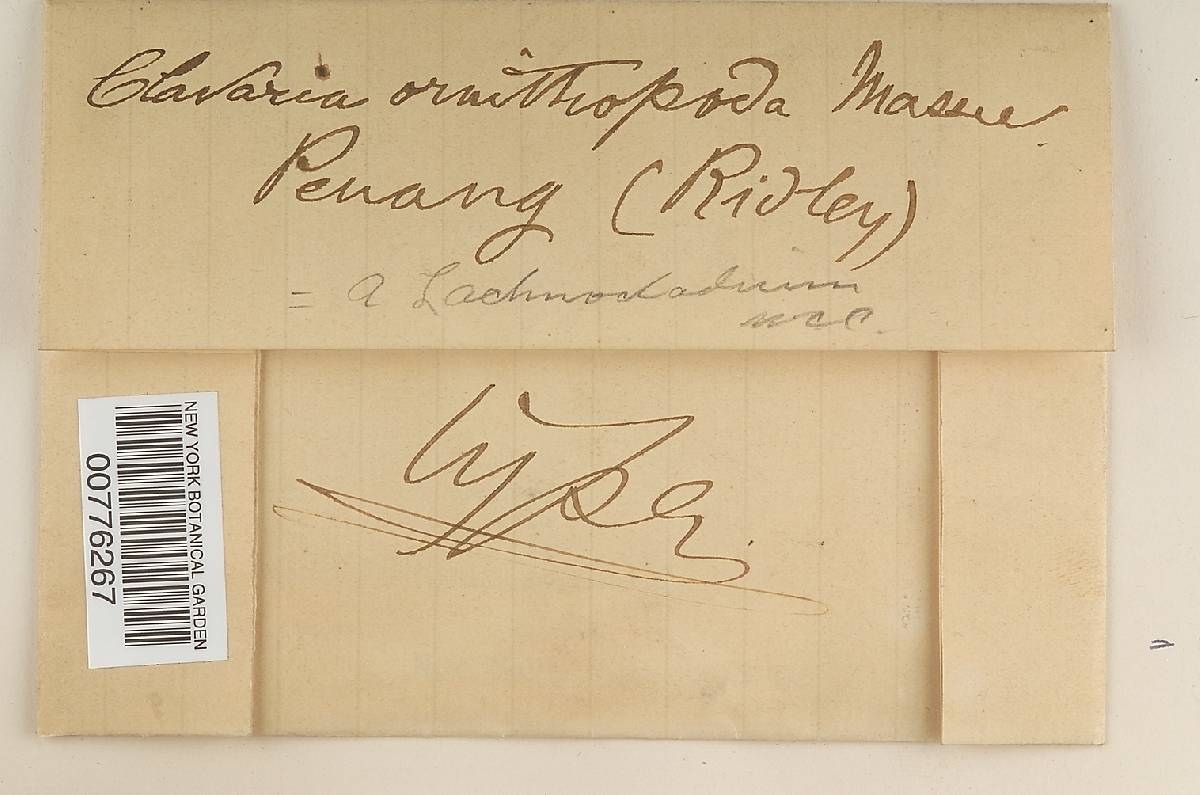 Clavaria ornithopoda Massee
Penang (Ridley)
= a Lachnocladium
WCC.
Type
NEW YORK BOTANICAL GARDEN
00776267